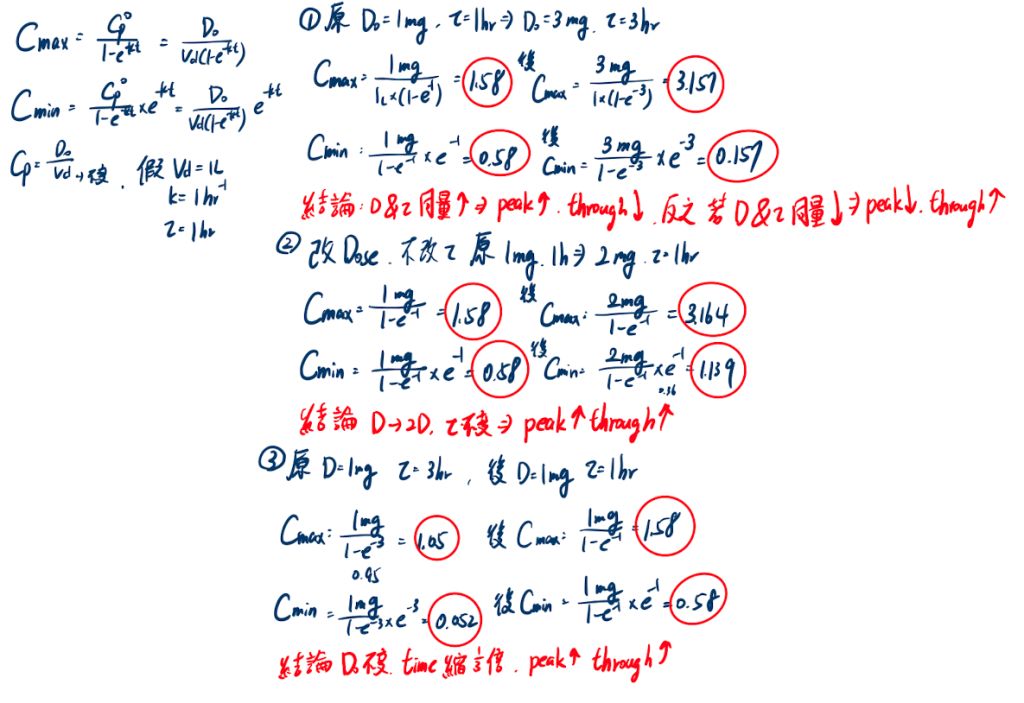 Cmax = Cp°/(1-e^-kt) = D₀/(Vd(1-e^-kt))
Cmin = Cp°/(1-e^-kt) × e^-kt = D₀/(Vd(1-e^-kt)) e^-kt
Cp = D₀/Vd → 不變, 假 Vd = 1L
k = 1hr⁻¹
τ = 1hr
① 原 D₀ = 1mg, τ = 1hr ⇒ D₀ = 3mg, τ = 3hr
Cmax = 1mg/(1L×(1-e⁻¹)) = 1.58 後 Cmax = 3mg/(1×(1-e⁻³)) = 3.157
Cmin = 1mg/(1-e⁻¹) × e⁻¹ = 0.58 後 Cmin = 3mg/(1-e⁻³) × e⁻³ = 0.157
結論: D & τ 同量↑ ⇒ peak↑, through↓, 反之 若 D & τ 同量↓ ⇒ peak↓, through↑
② 改 Dose, 不改 τ 原 1mg, 1h ⇒ 2mg, τ = 1hr
Cmax = 1mg/(1-e⁻¹) = 1.58 後 Cmax = 2mg/(1-e⁻¹) = 3.164
Cmin = 1mg/(1-e⁻¹) × e⁻¹ = 0.58 後 Cmin = 2mg/(1-e⁻¹) × e⁻¹ = 1.139
0.36
結論 D → 2D, τ 不變 ⇒ peak↑ through↑
③ 原 D = 1mg τ = 3hr, 後 D = 1mg τ = 1hr
Cmax = 1mg/(1-e⁻³) = 1.05 後 Cmax = 1mg/(1-e⁻¹) = 1.58
0.95
Cmin = 1mg/(1-e⁻³) × e⁻³ = 0.052 後 Cmin = 1mg/(1-e⁻¹) × e⁻¹ = 0.58
結論 D₀ 不變, time 縮 ⅓ 倍, peak↑ through↑